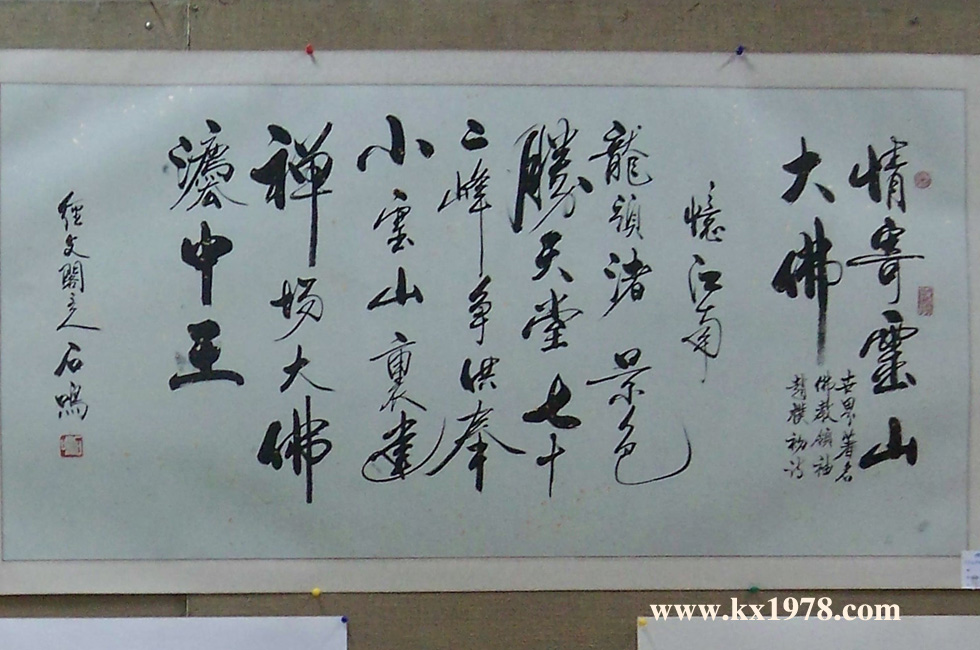 情寄靈山
大佛
世界著名
佛教領袖
趙樸初詩
憶江南
龍頭渚 景色
勝天堂 七十
二峰争供奉
小靈山 重建
禅場大佛
中王
石鳴
www.kx1978.com